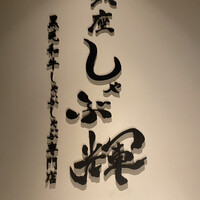 銀座しゃぶ輝
黒毛和牛しゃぶしゃぶ専門店